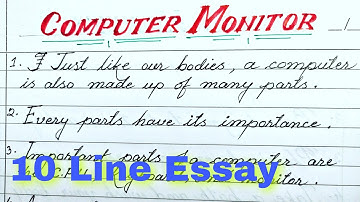 COMPUTER MONITOR
1. Just like our bodies, a computer
is also made up of many parts.
2. Every parts have its importance.
3. Important parts computer are
10 Line Essay